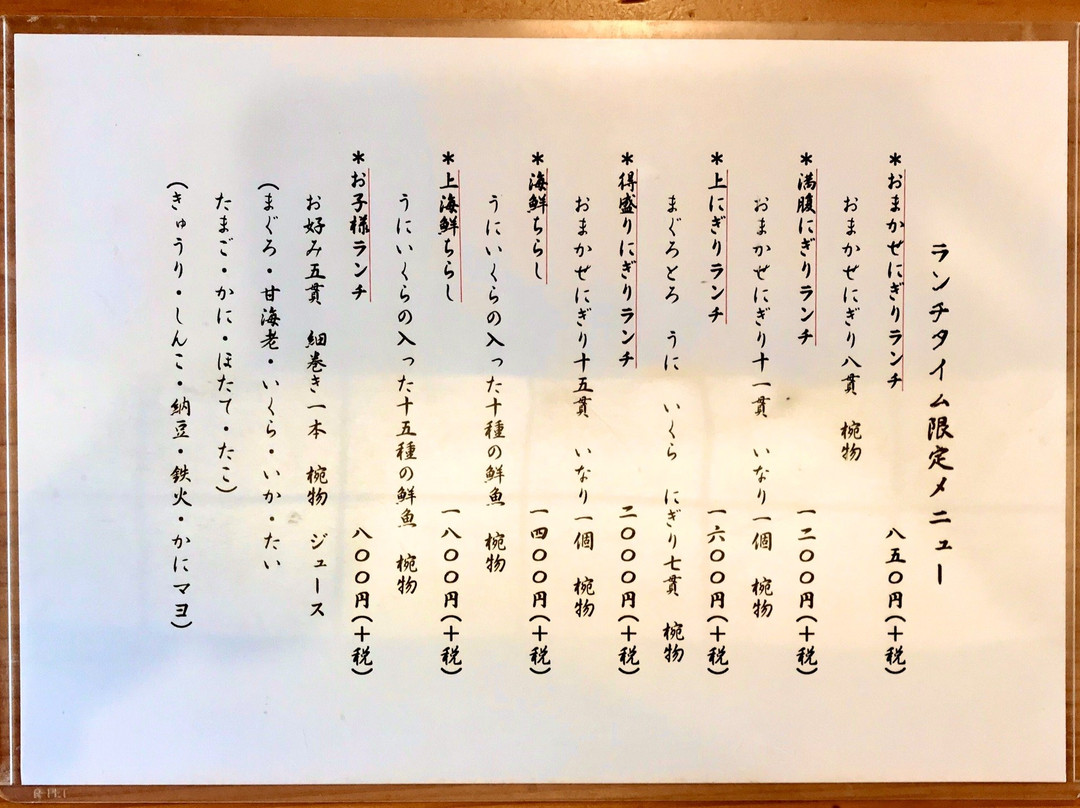 ランチタイム限定メニュー
*おまかせにぎりランチ 八五〇円(+税)
おまかせにぎり八貫 椀物
*満腹にぎりランチ 一二〇〇円(+税)
おまかせにぎり十一貫 いなり一個 椀物
*上にぎりランチ 一六〇〇円(+税)
まぐろとろ うに いくら にぎり七貫 椀物
*得盛りにぎりランチ 二〇〇〇円(+税)
おまかせにぎり十五貫 いなり一個 椀物
*海鮮ちらし 一四〇〇円(+税)
うにいくらの入った十種の鮮魚 椀物
*上海鮮ちらし 一八〇〇円(+税)
うにいくらの入った十五種の鮮魚 椀物
*お子様ランチ 八〇〇円(+税)
お好み五貫 細巻き一本 椀物 ジュース
(まぐろ・甘海老・いくら・いか・たい
たまご・かに・ほたて・たこ)
(きゅうり・しんこ・納豆・鉄火・かにマヨ)